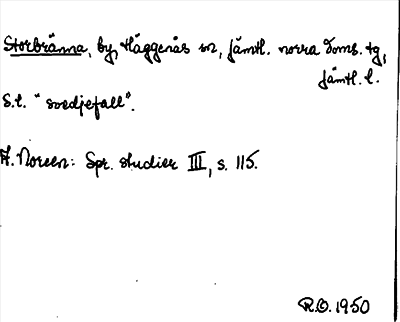 Storbränna, by, Häggenås sn, jämtl. norra doms. tg,
jämtl. l.
S.t. "svedjefall".
A. Noreen: Spr. studier III, s. 115.
R.O. 1950